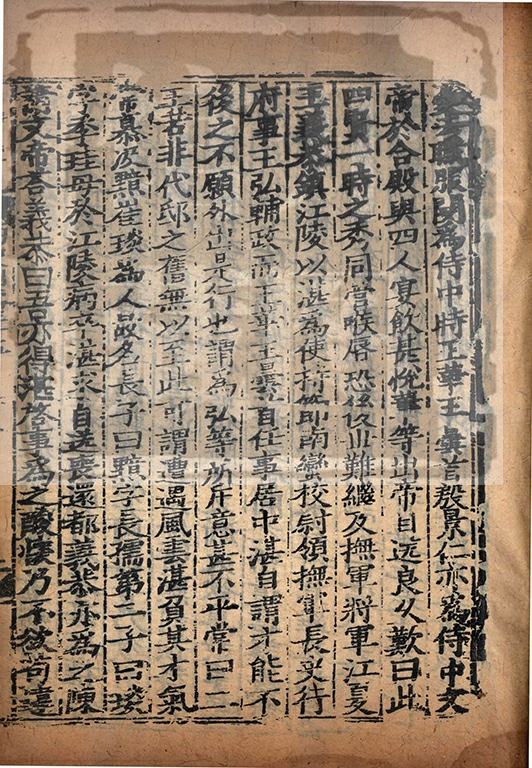 為侍中時王華王曇首殷景仁亦為侍中文
帝於合殿與四人宴飲甚悅華等出帝目送良久歎曰此
四賢一時之秀同管喉脣恐後世難繼及撫軍將軍江夏
王義恭鎮江陵以湛為使持節南蠻校尉領撫軍長史行
府事王弘輔政而王華王曇首任事居中湛自謂才能不
後之不願外出是行也謂為弘等所斥意甚不平常曰二
王若非代邸之舊無以至此可謂遭遇風雲湛負其才氣
常慕汲黯崔琰為人故名長子曰黯字長孺第二子曰琰
字季珪母於江陵病卒湛求自送喪還都義恭亦為之陳
請文帝荅義恭曰吾亦得湛啓事為之酸懷乃不欲苟違